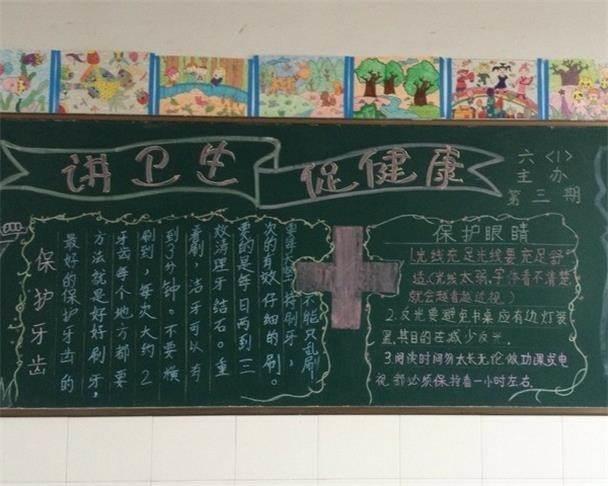 讲卫生 促健康
六〈1〉
主办
第三期
保护牙齿
最好的保护牙齿的
方法就是好好刷牙，
牙齿每个地方都要
刷到，每次大约2
到3分钟。不要横
着刷，洁牙可以有
效清理牙结石。重
要的是每日两到三
次的有效仔细的刷。
持刷牙，
不能只乱刷
保护眼睛
1.光线充足光线要充足舒
适.(光线太弱,字体看不清楚
就会越看越近视)
2.反光要避免书桌应有边灯装
置,其目的在减少反光.
3.阅读时间勿太长无论做功课或电
视都必须保持看一小时左右.